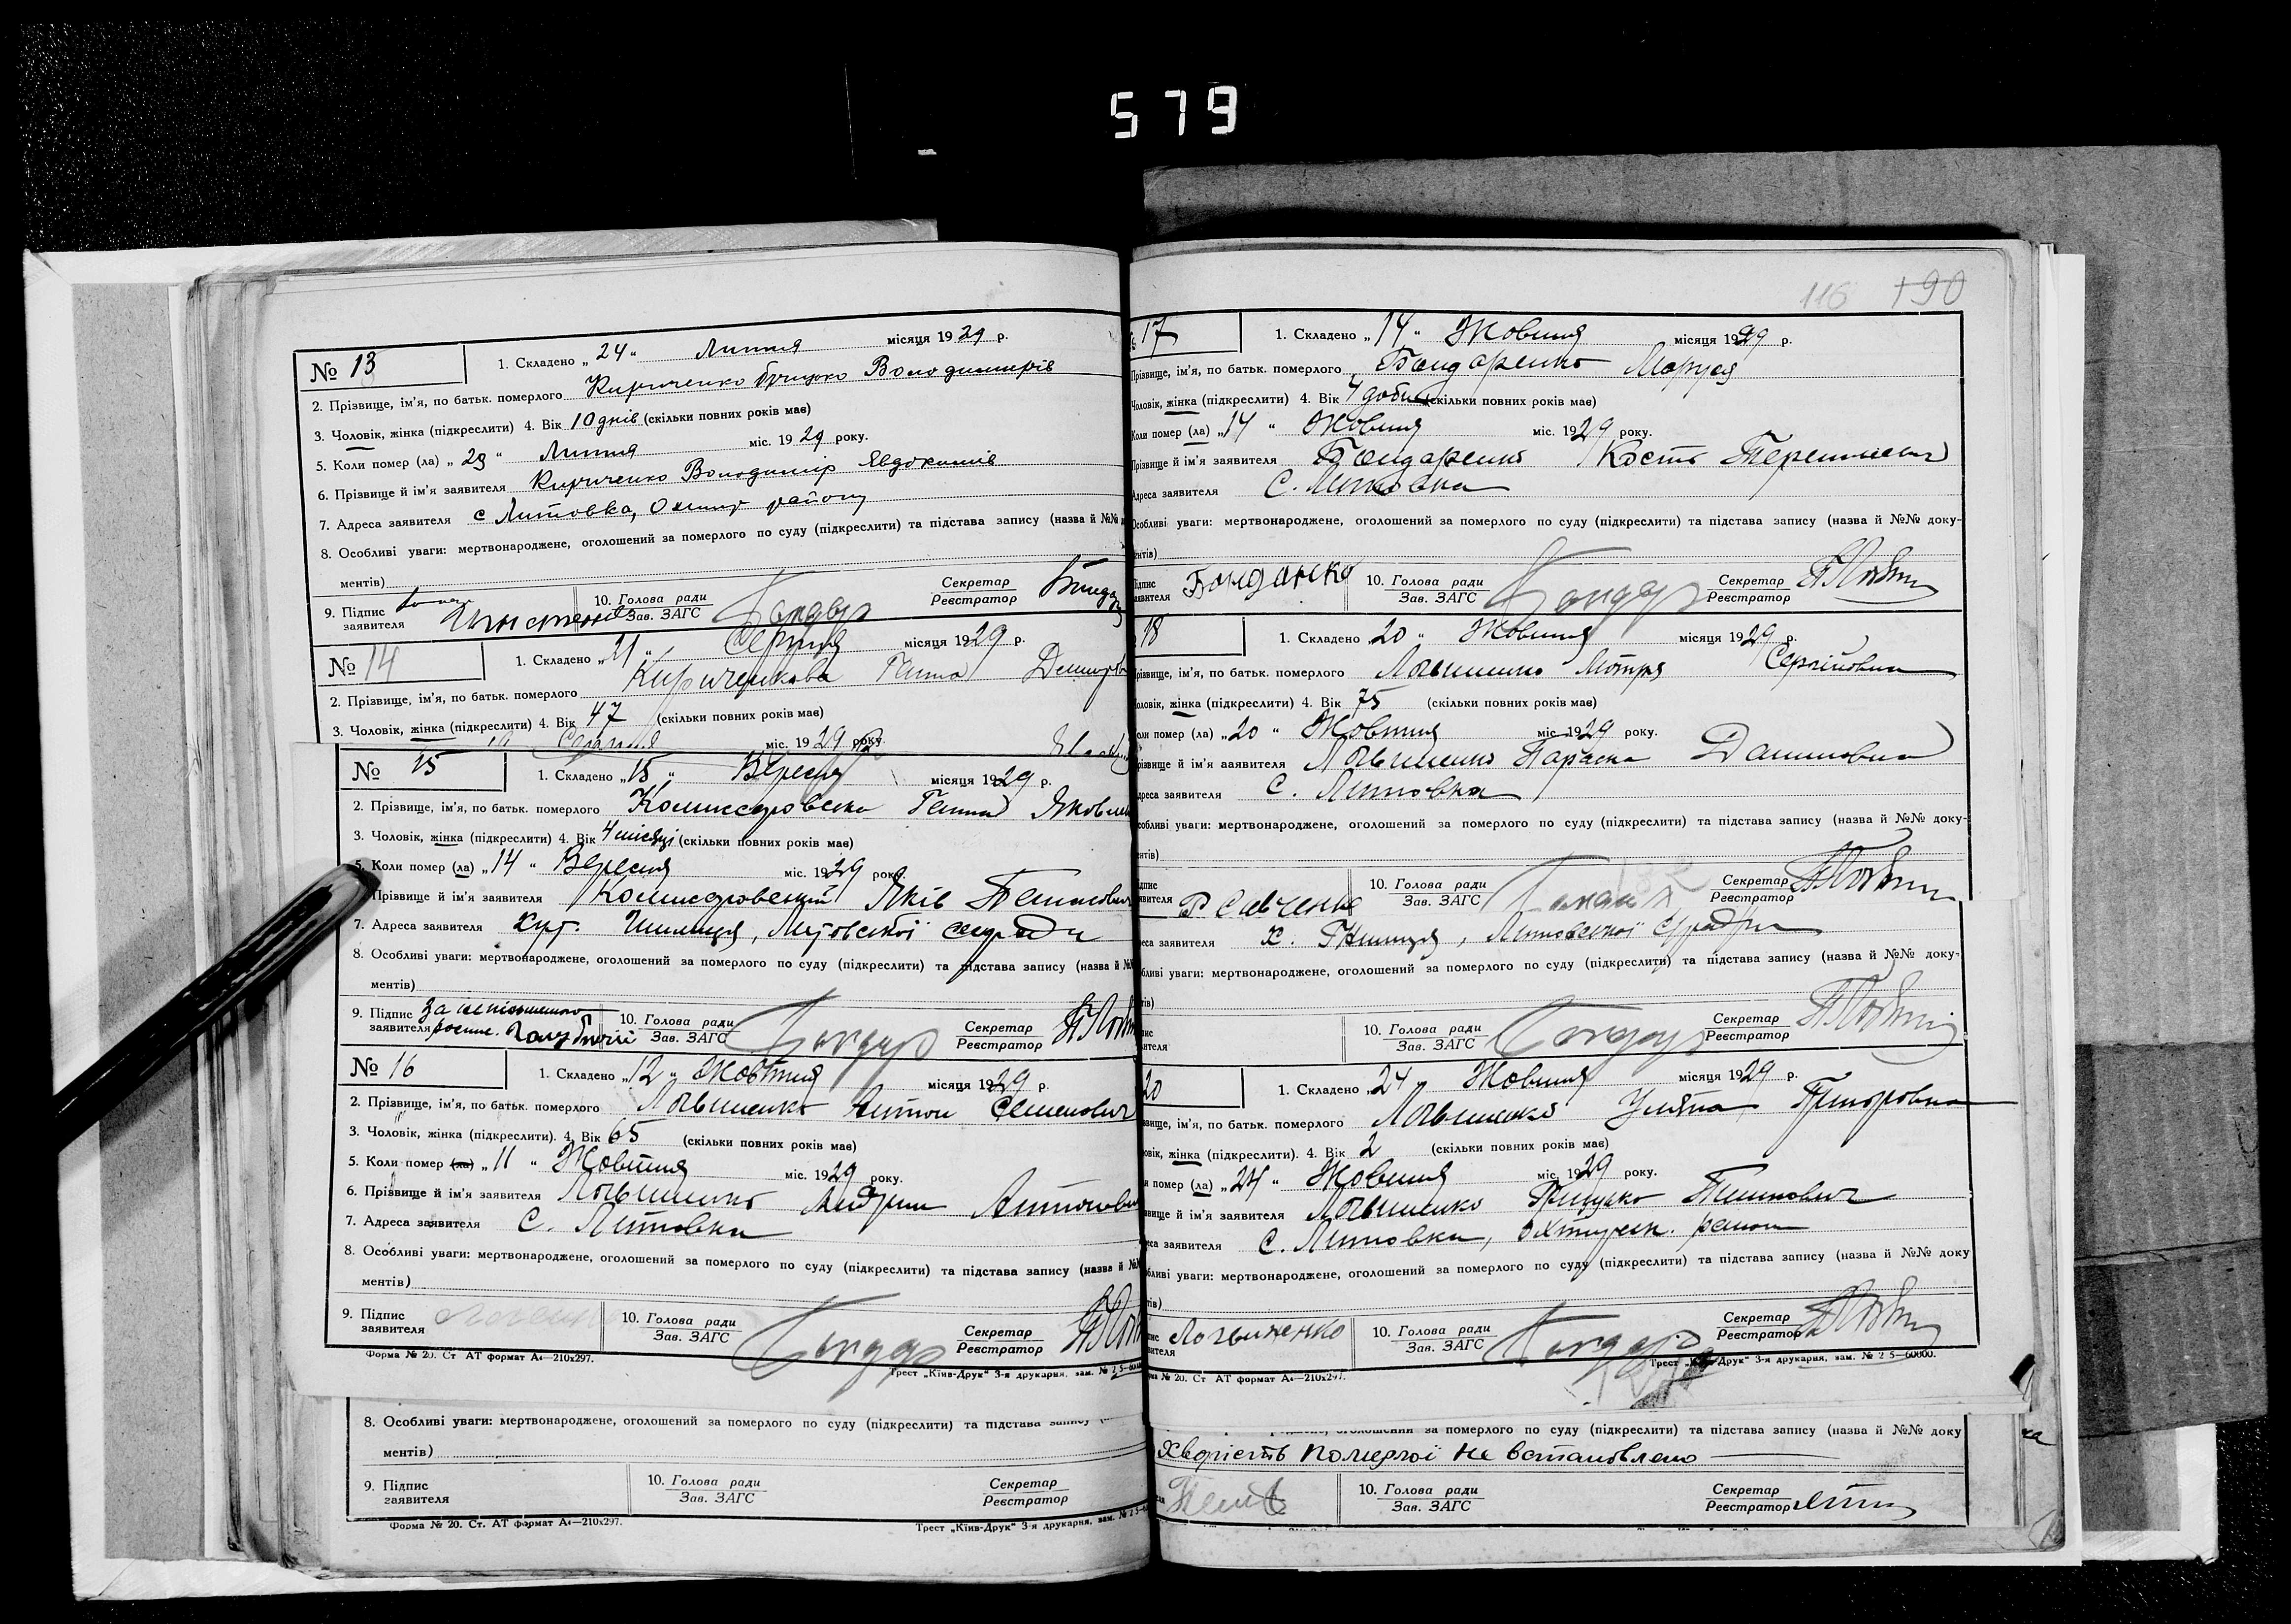 579
№ 13
1. Складено „24“ Липня місяця 1929 р.
2. Прізвище, ім'я, по батьк. померлого Кириченко Грицько Володимирів
3. Чоловік, жінка (підкреслити) 4. Вік 10 днів (скільки повних років має)
5. Коли помер (ла) „23“ Липня міс. 1929 року.
6. Прізвище й ім'я заявителя Кириченко Володимір Явдокимів
7. Адреса заявителя с Литовка, Охтир району
8. Особливі уваги: мертвонароджене, оголошений за померлого по суду (підкреслити) та підстава запису (назва й №№
ментів)
9. Підпис заявителя
10. Голова ради Зав. ЗАГС Бондар
Секретар Реєстратор
№ 14
1. Складено „21“ Серпня місяця 1929 р.
2. Прізвище, ім'я, по батьк. померлого Кириченкова Ганна
3. Чоловік, жінка (підкреслити) 4. Вік 47 (скільки повних років має)
Серпня міс. 1929 року.
№ 15
1. Складено „15“ Вересня місяця 1929 р.
2. Прізвище, ім'я, по батьк. померлого Комисаровська Ганна
3. Чоловік, жінка (підкреслити) 4. Вік 4 місяці (скільки повних років має)
5. Коли помер (ла) „14“ Вересня міс. 1929 року
Прізвище й ім'я заявителя Комисаровський Яків
7. Адреса заявителя хут. Литовської сельради
8. Особливі уваги: мертвонароджене, оголошений за померлого по суду (підкреслити) та підстава запису (назва й
ментів)
9. Підпис заявителя За неписьменного
10. Голова ради Зав. ЗАГС Бондар
Секретар Реєстратор
№ 16
1. Складено „12“ Жовтня місяця 1929 р.
2. Прізвище, ім'я, по батьк. померлого Логвиненко Антон Семенович
3. Чоловік, жінка (підкреслити). 4. Вік 65 (скільки повних років має)
5. Коли помер (ла) „11“ Жовтня міс. 1929 року.
6. Прізвище й ім'я заявителя Логвиненко
7. Адреса заявителя С. Литовка
8. Особливі уваги: мертвонароджене, оголошений за померлого по суду (підкреслити) та підстава запису (назва й
ментів)
9. Підпис заявителя
10. Голова ради Зав. ЗАГС Бондар
Секретар Реєстратор
Форма № 20. Ст АТ формат А4—210х297.
Трест „Київ-Друк“ 3-я друкарня, зам. №
8. Особливі уваги: мертвонароджене, оголошений за померлого по суду (підкреслити) та підстава запису
ментів)
9. Підпис заявителя
10. Голова ради Зав. ЗАГС
Секретар Реєстратор
Форма № 20. Ст. АТ формат А4—210х297.
Трест „Київ-Друк“ 3-я друкарня, зам. №
116 190
17
1. Складено „14“ Жовтня місяця 1929 р.
Прізвище, ім'я, по батьк. померлого Бондаренко Маруся
Чоловік, жінка (підкреслити) 4. Вік 4 доби (скільки повних років має)
Коли помер (ла) „14“ Жовтня міс. 1929 року.
Прізвище й ім'я заявителя Бондаренко Кость
Адреса заявителя С. Литовка
Особливі уваги: мертвонароджене, оголошений за померлого по суду (підкреслити) та підстава запису (назва й №№ доку-
ентів)
10. Голова ради Зав. ЗАГС Бондар
Секретар Реєстратор
18
1. Складено „20“ Жовтня місяця 1929 р.
різвище, ім'я, по батьк. померлого Логвиненко Мотря Сергіївна
оловік, жінка (підкреслити) 4. Вік 75 (скільки повних років має)
оли помер (ла) „20“ Жовтня міс. 1929 року.
різвище й ім'я заявителя Логвиненко Параска
дреса заявителя С. Литовка
собливі уваги: мертвонароджене, оголошений за померлого по суду (підкреслити) та підстава запису (назва й №№ доку-
ентів)
Савченко
10. Голова ради Зав. ЗАГС
Секретар Реєстратор
реса заявителя х. Литовської с/ради
бливі уваги: мертвонароджене, оголошений за померлого по суду (підкреслити) та підстава запису (назва й №№ доку-
тів)
10. Голова ради Зав. ЗАГС Бондар
Секретар Реєстратор
20
1. Складено „24“ Жовтня місяця 1929 р.
вище, ім'я, по батьк. померлого Логвиненко Уляна Григоровна
овік, жінка (підкреслити). 4. Вік 2 (скільки повних років має)
помер (ла) „24“ Жовтня міс. 1929 року.
вище й ім'я заявителя Логвиненко Грицько
еса заявителя С. Литовка, Охтирськ. район
бливі уваги: мертвонароджене, оголошений за померлого по суду (підкреслити) та підстава запису (назва й №№ доку
тів)
Логвиненко
10. Голова ради Зав. ЗАГС Бондар
Секретар Реєстратор
№ 20. Ст АТ формат А4—210х297.
Трест „Київ-Друк“ 3-я друкарня, зам. № 25—60000.
за померлого по суду (підкреслити) та підстава запису (назва й №№ доку
хворість померлої не встановлено
10. Голова ради Зав. ЗАГС
Секретар Реєстратор